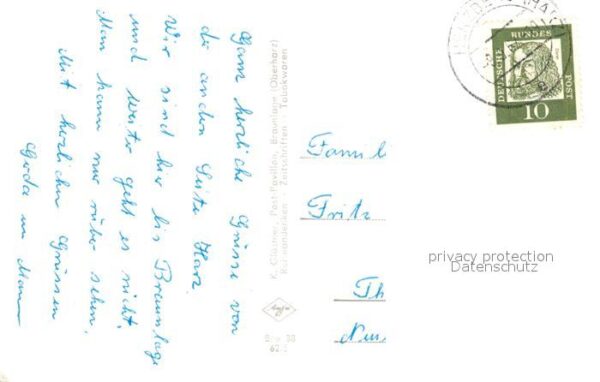 Ganz herzliche Grüsse von
der andern Seite Harz.
Wir sind hier bis Braunlage
und weiter geht es nicht.
Man kann nur rüber sehen.
Mit herzlichen Grüssen
Gerda u. Mann
K. Glässner, Post-Pavillon, Braunlage (Oberharz)
Kurwandelken - Zeitschriften - Tabakwaren
Agfa
62
Famil
Fritz
Th
DEUTSCHE
BUNDES
POST
10
privacy protection
Datenschutz